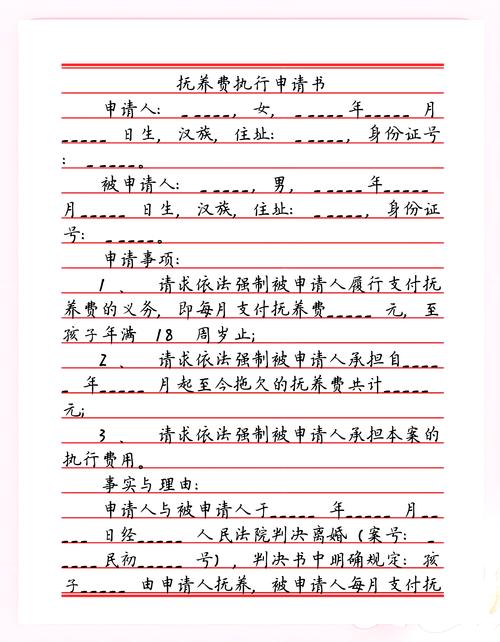 抚养费执行申请书
申请人: _____, 女, _____年_____ 月
_____ 日生, 汉族, 住址: _____, 身份证号
: _____。
被申请人: _____, 男, _____年_____
月_____ 日生, 汉族, 住址: _____, 身份证
号: _____。
申请事项:
1 、 请求依法强制被申请人履行支付抚
养费的义务, 即每月支付抚养费_____ 元, 至
孩子年满 18 周岁止;
2 、 请求依法强制被申请人承担自____
_ 年_____ 月起至今拖欠的抚养费共计_____
元;
3 、 请求依法强制被申请人承担本案的
执行费用。
事实与理由:
申请人与被申请人于_____ 年_____ 月__
___ 日经_____ 人民法院判决离婚 (案号: _
____民初_____ 号), 判决书中明确规定: 孩
子_____ 由申请人抚养, 被申请人每月支付抚